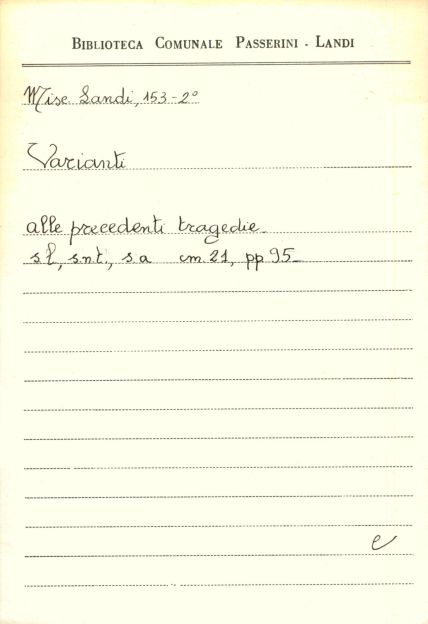 BIBLIOTECA COMUNALE PASSERINI - LANDI
Misc Landi, 153-2°
Varianti
alle precedenti tragedie.
s l, s.n.t., s. a cm. 21, pp 95-
e